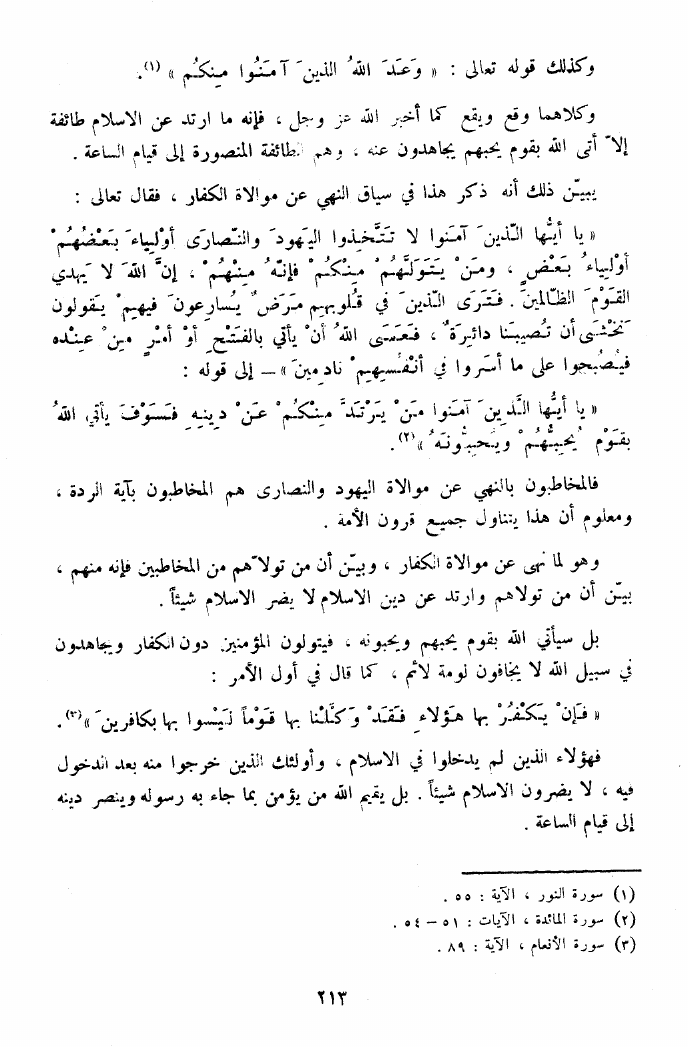 وكذلك قوله تعالى : « وَعَدَ اللهُ الذينَ آمَنُوا مِنكُم » (١).
وكلاهما وقع ويقع كما أخبر الله عز وجل ، فإنه ما ارتد عن الاسلام طائفة
إلاّ أتى الله بقوم يحبهم يجاهدون عنه ، وهم الطائفة المنصورة إلى قيام الساعة .
يبيّن ذلك أنه ذكر هذا في سياق النهي عن موالاة الكفار ، فقال تعالى :
« يا أيُّها الّذينَ آمَنوا لا تَتَّخِذوا اليَهودَ والنّصارَى أوْلِياءَ بَعْضُهُمْ
أوْلِياءُ بَعْضٍ ، ومَنْ يَتَوَلَّهُمْ مِنْكُمْ فإنّهُ مِنْهُمْ ، إنَّ اللهَ لا يَهدي
القَوْمَ الظّالمينَ . فَتَرَى الّذينَ في قُلوبِهِم مَرَضٌ يُسارِعونَ فيهِمْ يَقولون
نَخْشَى أن تُصيبَنا دائِرَةٌ ، فَعَسَى اللهُ أنْ يأتي بالفَتْحِ أوْ أمْرٍ مِنْ عِنْده
فيُصْبحوا على ما أسَروا في أنْفُسِهِمْ نادِمينَ » – إلى قوله :
« يا أيُّها الَّذينَ آمَنوا مَنْ يَرْتَدَّ مِنْكُمْ عَنْ دينِهِ فَسَوْفَ يأتي اللهُ
بقَوْمٍ يُحِبُّهُمْ ويُحِبُّونَهُ » (٢).
فالمخاطبون بالنهي عن موالاة اليهود والنصارى هم المخاطبون بآية الردة ،
ومعلوم أن هذا يتناول جميع قرون الأمة .
وهو لما نهى عن موالاة الكفار ، وبيّن أن من تولاّهم من المخاطبين فإنه منهم ،
بيّن أن من تولاهم وارتد عن دين الاسلام لا يضر الاسلام شيئاً .
بل سيأتي الله بقوم يحبهم ويحبونه ، فيتولون المؤمنين دون الكفار ويجاهدون
في سبيل الله لا يخافون لومة لائم ، كما قال في أول الأمر :
« فَإنْ يَكْفُرْ بها هَؤلاءِ فَقَدْ وَكَّلْنا بها قَوْماً لَيْسوا بها بكافرينَ » (٣).
فهؤلاء الذين لم يدخلوا في الاسلام ، وأولئك الذين خرجوا منه بعد الدخول
فيه ، لا يضرون الاسلام شيئاً . بل يقيم الله من يؤمن بما جاء به رسوله وينصر دينه
إلى قيام الساعة .
(١) سورة النور ، الآية : ٥٥ .
(٢) سورة المائدة ، الآيات : ٥١ – ٥٤ .
(٣) سورة الأنعام ، الآية : ٨٩ .
٢١٣